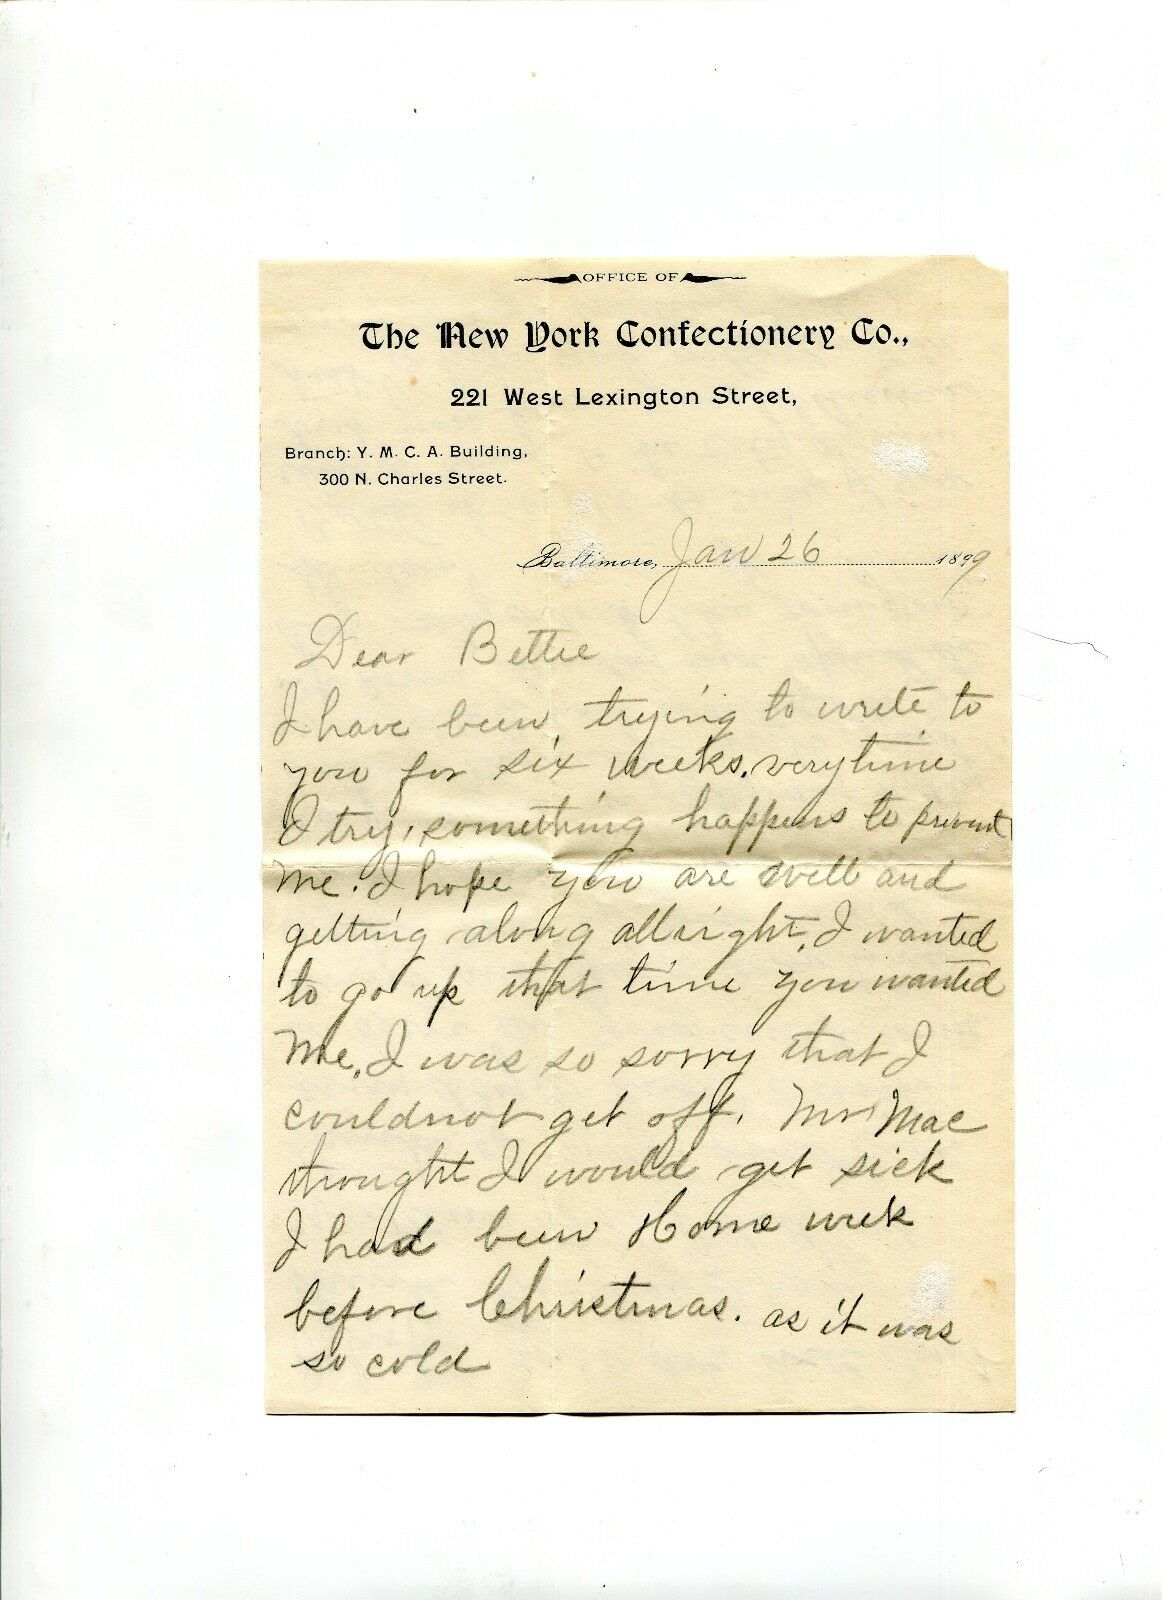 OFFICE OF
The New York Confectionery Co.,
221 West Lexington Street,
Branch: Y. M. C. A. Building,
300 N. Charles Street.
Baltimore, Jan 26 1899
Dear Bettie
I have been, trying to write to
you for six weeks. verytime
I try, something happens to prevent
me. I hope you are well and
getting along allright, I wanted
to go up that time you wanted
me, I was so sorry that I
couldnot get off. Mr Mac
thought I would get sick
I had been Home week
before Christmas. as it was
so cold